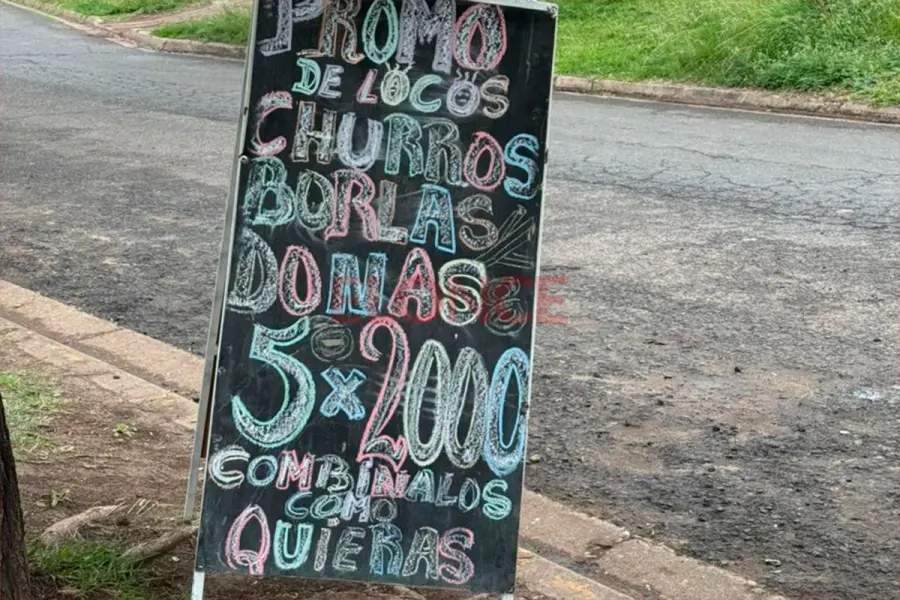 PROMO
DE LOCOS
CHURROS
BORLAS
DONAS
5 x 2000
COMBINALOS
COMO
QUIERAS